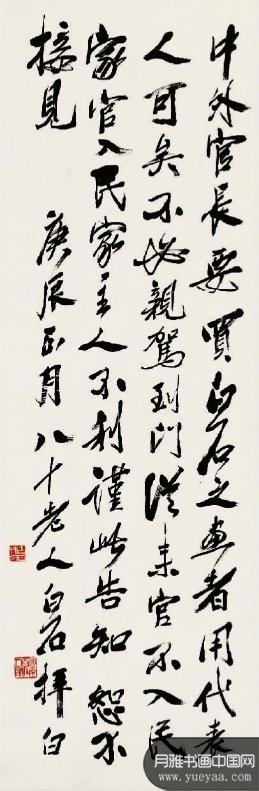 中外官長要買白石之畫者用代表
人可矣不必親駕到門從來官不入民
家官入民家主人不利謹此告知恕不
接見
庚辰正月八十老人白石拜白
月雅书画中国网
www.yueyaa.com